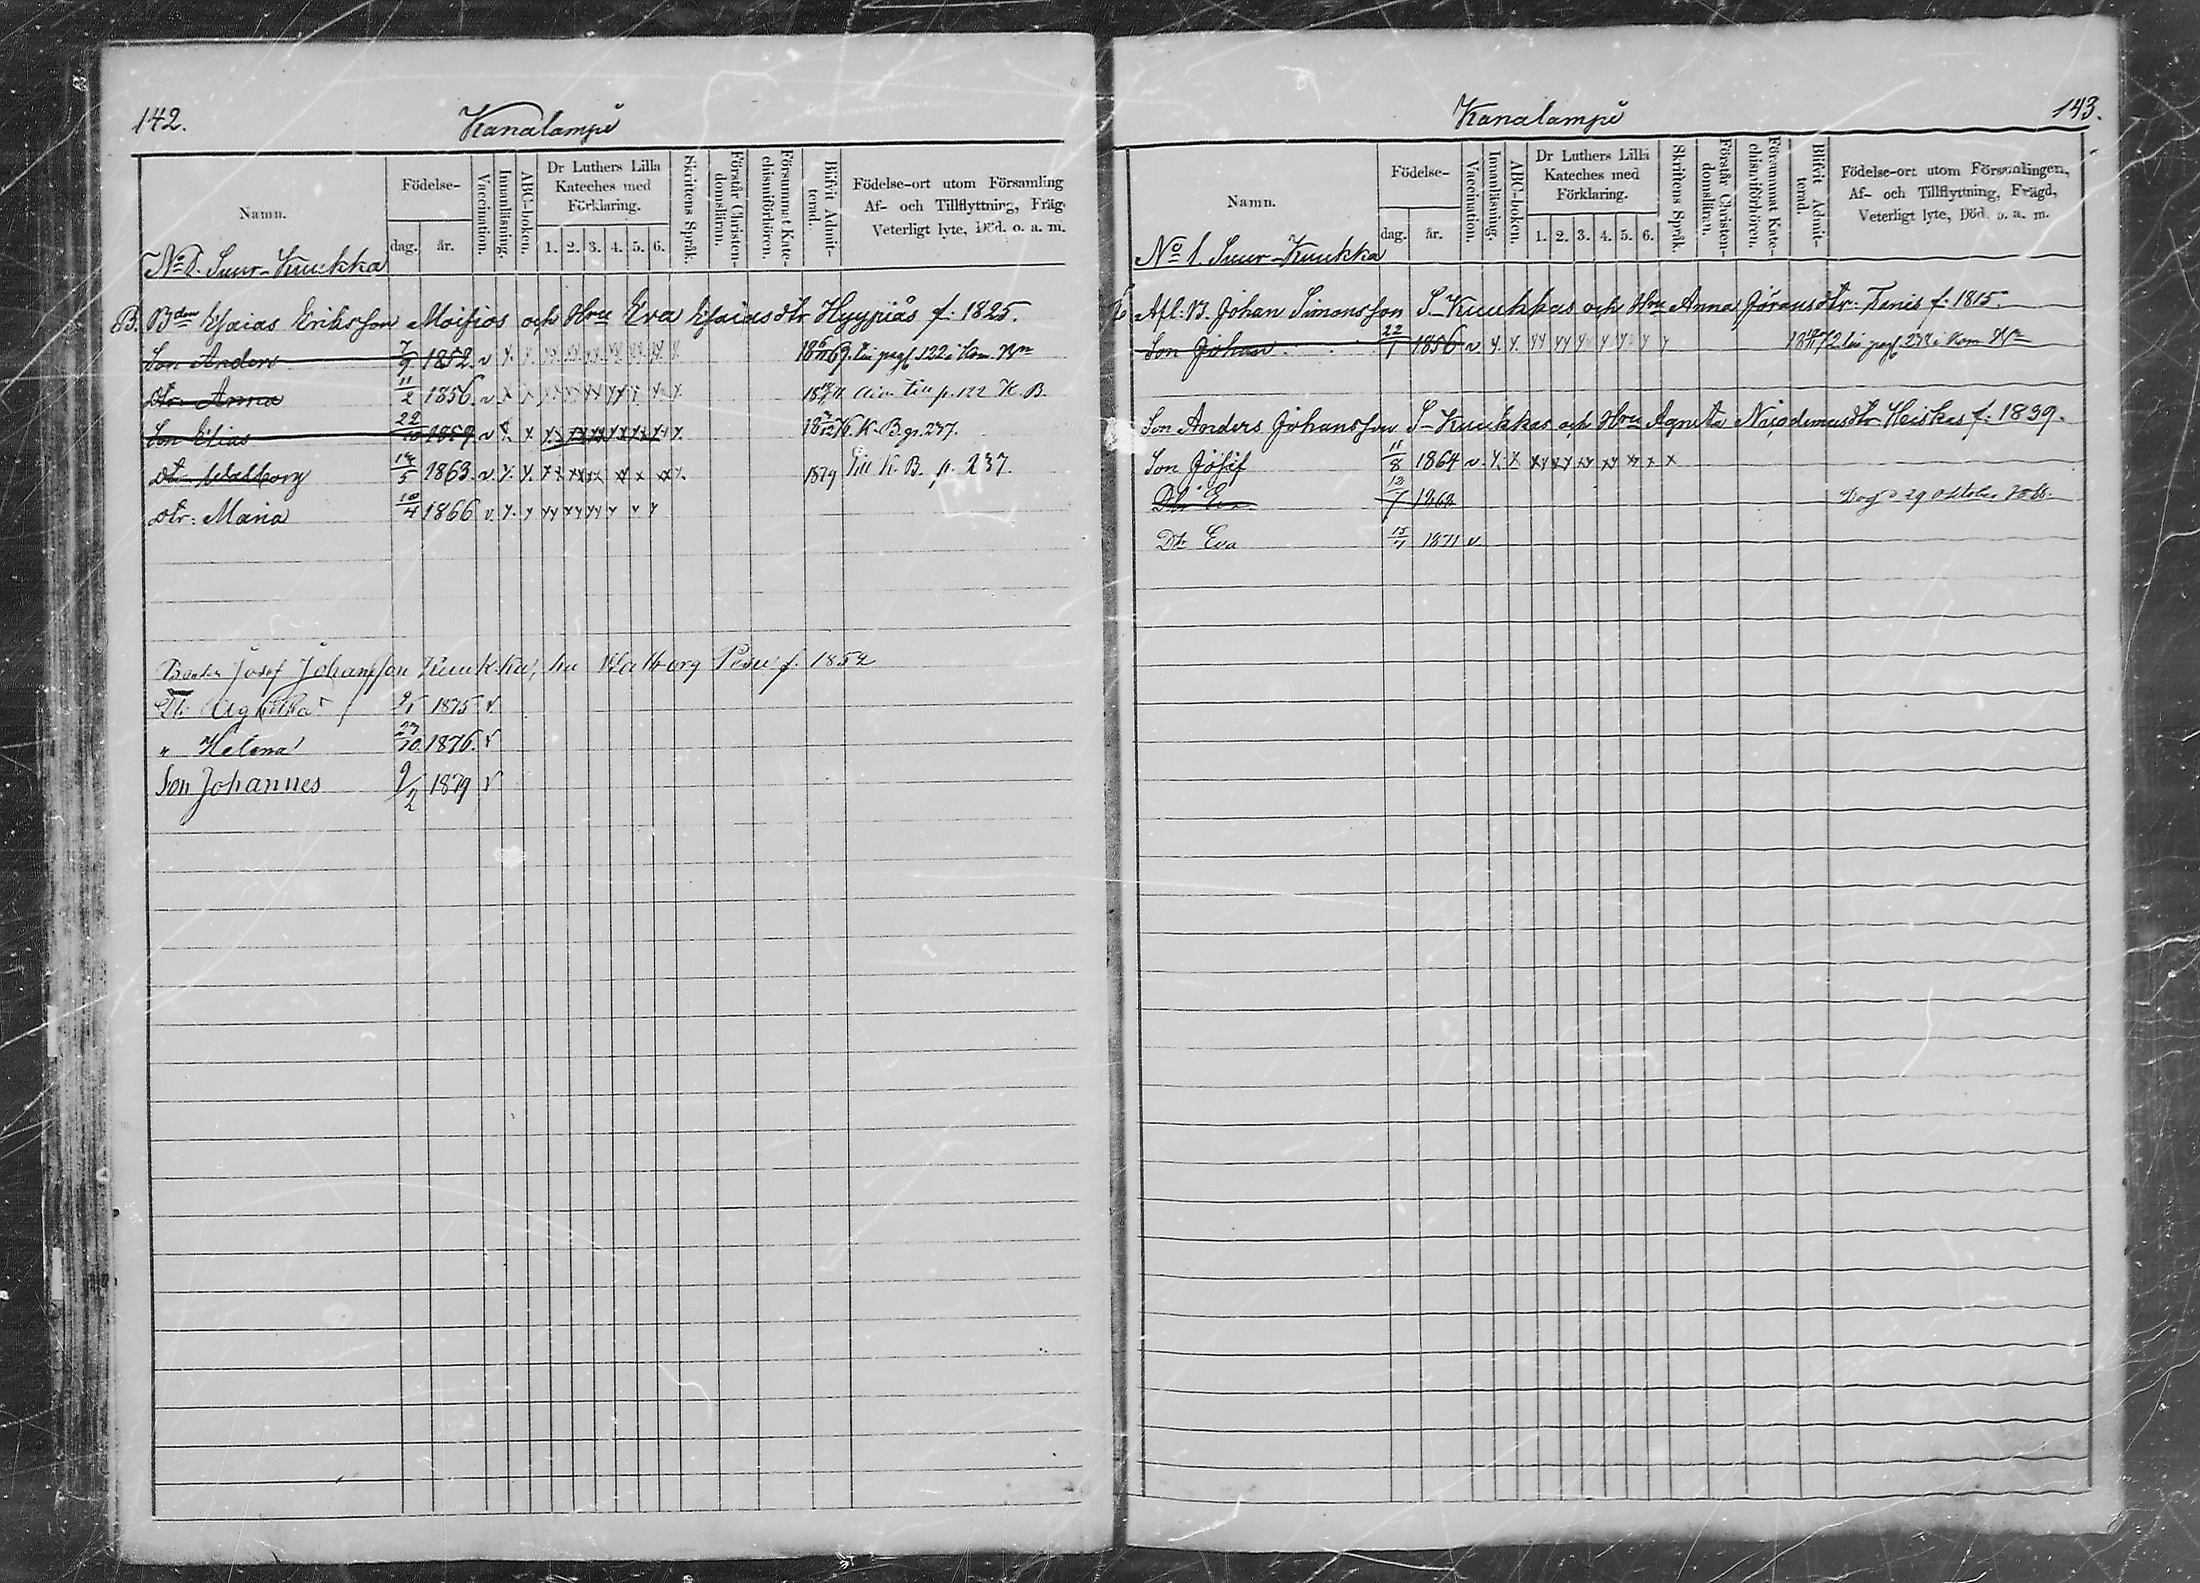 142.
Kanalampi
Namn.
Födelse-
dag.
år.
Vaccination.
Innanläsning.
ABC-boken.
Dr Luthers Lilla
Kateches med
Förklaring.
1. 2. 3. 4. 5. 6.
Skriftens Språk.
Förstår Christen-
domsläran.
Försummat Kate-
chismiförhören.
Blifvit Admit-
terad.
Födelse-ort utom Församling
Af- och Tillflyttning, Fräg
Veterligt lyte, Död. o. a. m.
Suur-Kuukka
B. Bden Esaias Eriksson Moisios och Hru Eva Esaiasdtr Hyypiäs f. 1825.
Son Anders 7/9 1852. v
pag. 122 i Kom. Bn
dtr Anna 11/2 1856. v
till p. 122 K. B.
Son Elias 1859. v
K. B. p. 237.
dtr Walborg 1863. v.
1879 till K. B. p. 237.
dtr: Maria 10/4 1866 v.
Josef Johansson Kuukka, hu Walborg f. 1852
1875 v
" Helena 27/10 1876. v
Son Johannes 9/2 1879 v
Kanalampi
143.
Namn.
Födelse-
dag.
år.
Vaccination.
Innanläsning.
ABC-boken.
Dr Luthers Lilla
Kateches med
Förklaring.
1. 2. 3. 4. 5. 6.
Skriftens Språk.
Förstår Christen-
domsläran.
Försummat Kate-
chismiförhören.
Blifvit Admit-
terad.
Födelse-ort utom Församlingen,
Af- och Tillflyttning, Frägd,
Veterligt lyte, Död. o. a. m.
No 1. Suur-Kuukka
Afl: B. Johan Simonsson S-Kuukkas och Hru Anna Jöransdtr: f. 1815.
Son Johan 22/1 1856 v.
i Kom Bn
Son Anders Johansson S-Kuukkas och Hru Agneta Nicodemusdtr Heiskas f. 1839.
Son Josef 11/8 1864 v
Dtr Eva 12/7 1868
29 oktober
Dtr Eva 15/7 1871 v.